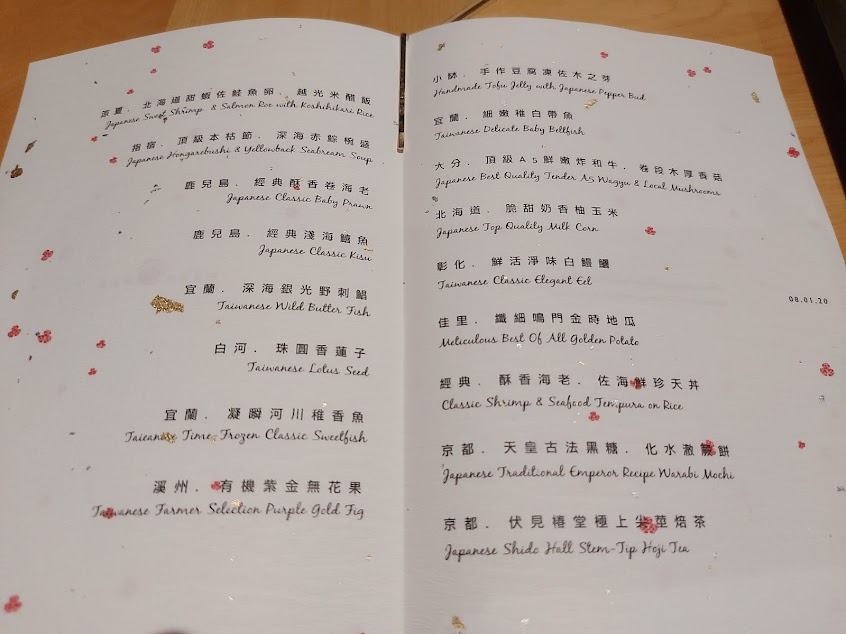 涼夏．北海道甜蝦佐鮭魚卵．越光米醋飯
Japanese Sweet Shrimp & Salmon Roe with Koshihikari Rice
指宿．頂級本枯節．深海赤鯮椀盛
Japanese Hongarebushi & Yellowback Seabream Soup
鹿兒島．經典酥香卷海老
Japanese Classic Baby Prawn
鹿兒島．經典淺海鱚魚
Japanese Classic Kisu
宜蘭．深海銀光野刺鯧
Taiwanese Wild Butter Fish
白河．珠圓香蓮子
Taiwanese Lotus Seed
宜蘭．凝瞬河川稚香魚
Taiwanese Time Frozen Classic Sweetfish
溪州．有機紫金無花果
Taiwanese Farmer Selection Purple Gold Fig
小缽．手作豆腐凍佐木之芽
Handmade Tofu Jelly with Japanese Pepper Bud
宜蘭．細嫩稚白帶魚
Taiwanese Delicate Baby Beltfish
大分．頂級A5鮮嫩炸和牛．卷段木厚香菇
Japanese Best Quality Tender A5 Wagyu & Local Mushrooms
北海道．脆甜奶香柚玉米
Japanese Top Quality Milk Corn
彰化．鮮活淨味白鰻鱺
Taiwanese Classic Elegant Eel
佳里．纖細鳴門金時地瓜
Meticulous Best Of All Golden Potato
經典．酥香海老．佐海鮮珍天丼
Classic Shrimp & Seafood Tempura on Rice
京都．天皇古法黑糖．化水澈蕨餅
Japanese Traditional Emperor Recipe Warabi Mochi
京都．伏見椿堂極上尖莖焙茶
Japanese Shido Hall Stem-Tip Hoji Tea
08.01.20